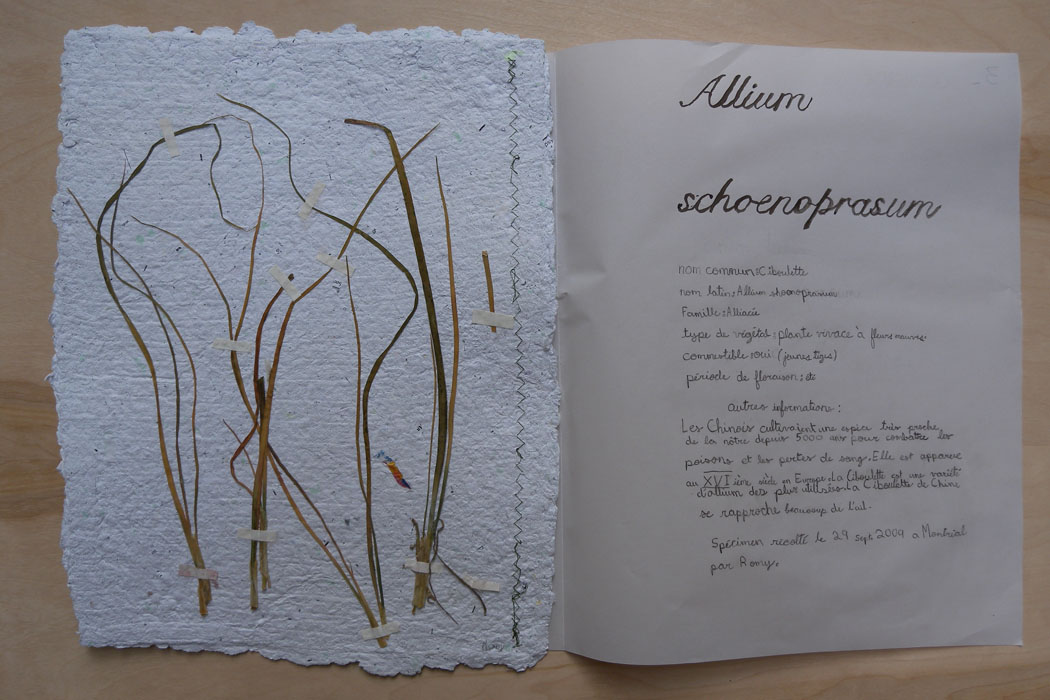 Allium
schoenoprasum
nom commun: Ciboulette
nom latin: Allium shoenoprasum
Famille: Alliacié
type de végétal: plante vivace à fleurs mauves.
commestible: oui (jeunes tiges)
période de floraison: été
autres informations:
Les Chinois cultivaient une espèce très proche
de la nôtre depuis 5000 ans pour combatre les
poisons et les pertes de sang. Elle est apparue
au XVI ième siècle en Europe. La Ciboulette est une variété
d'allium des plus utilisés. La Ciboulette de Chine
se rapproche beaucoup de l'ail.
Spécimen récolté le 29 sept. 2009 a Montréal
par Romy.